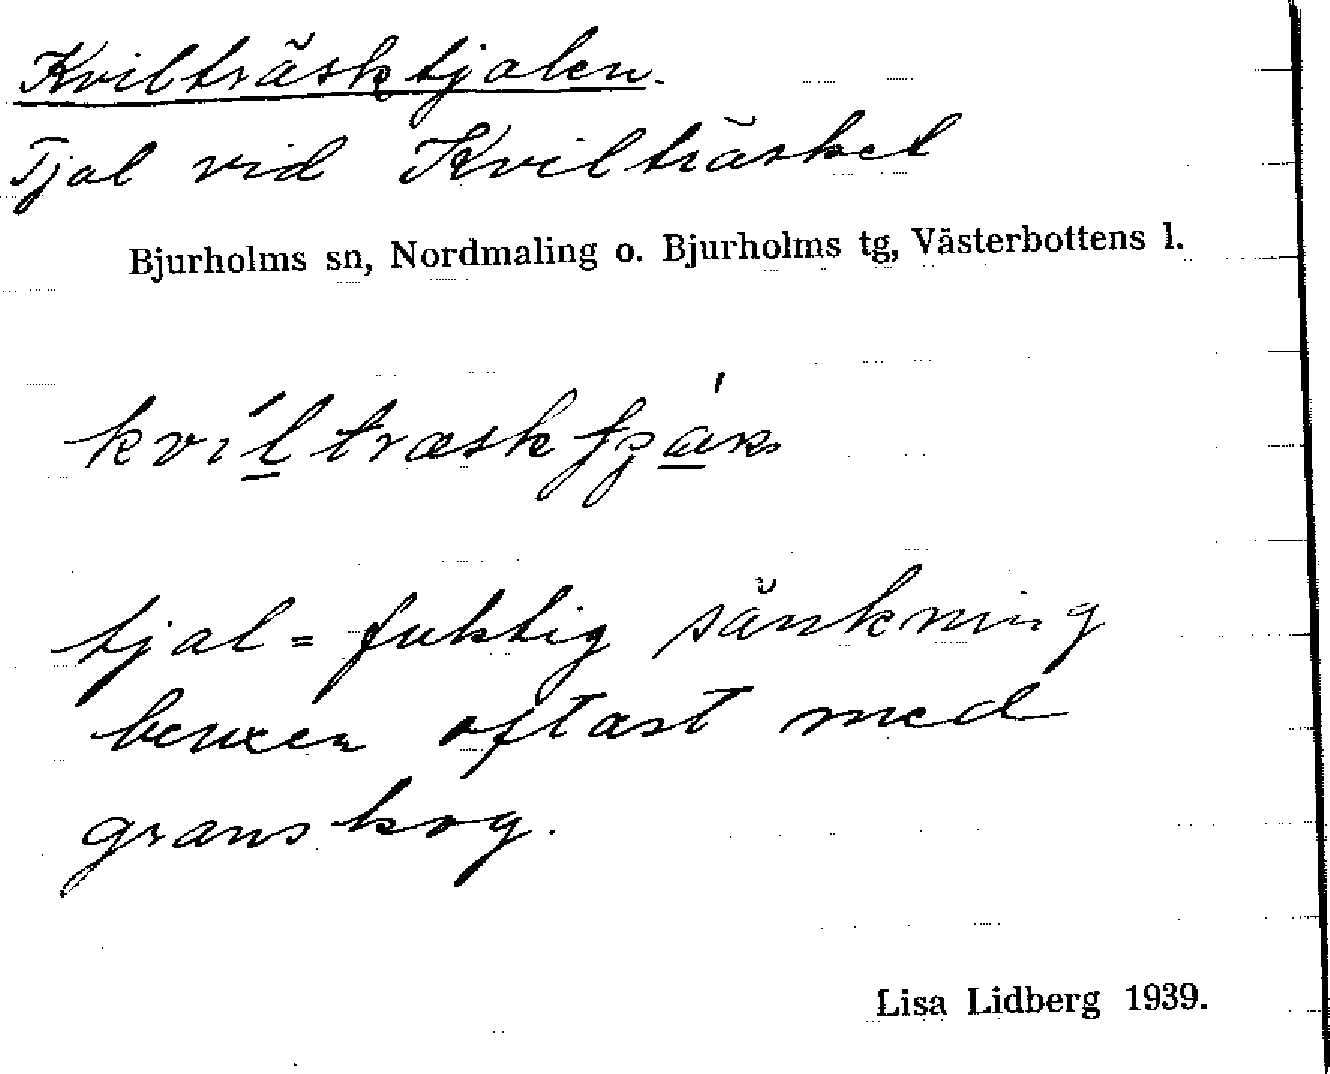 Kvilträsktjalen.
Tjal vid Kvilträsket
Bjurholms sn, Nordmaling o. Bjurholms tg, Västerbottens l.
tjal = fuktig sänkning
bevuxen oftast med
granskog.
Lisa Lidberg 1939.